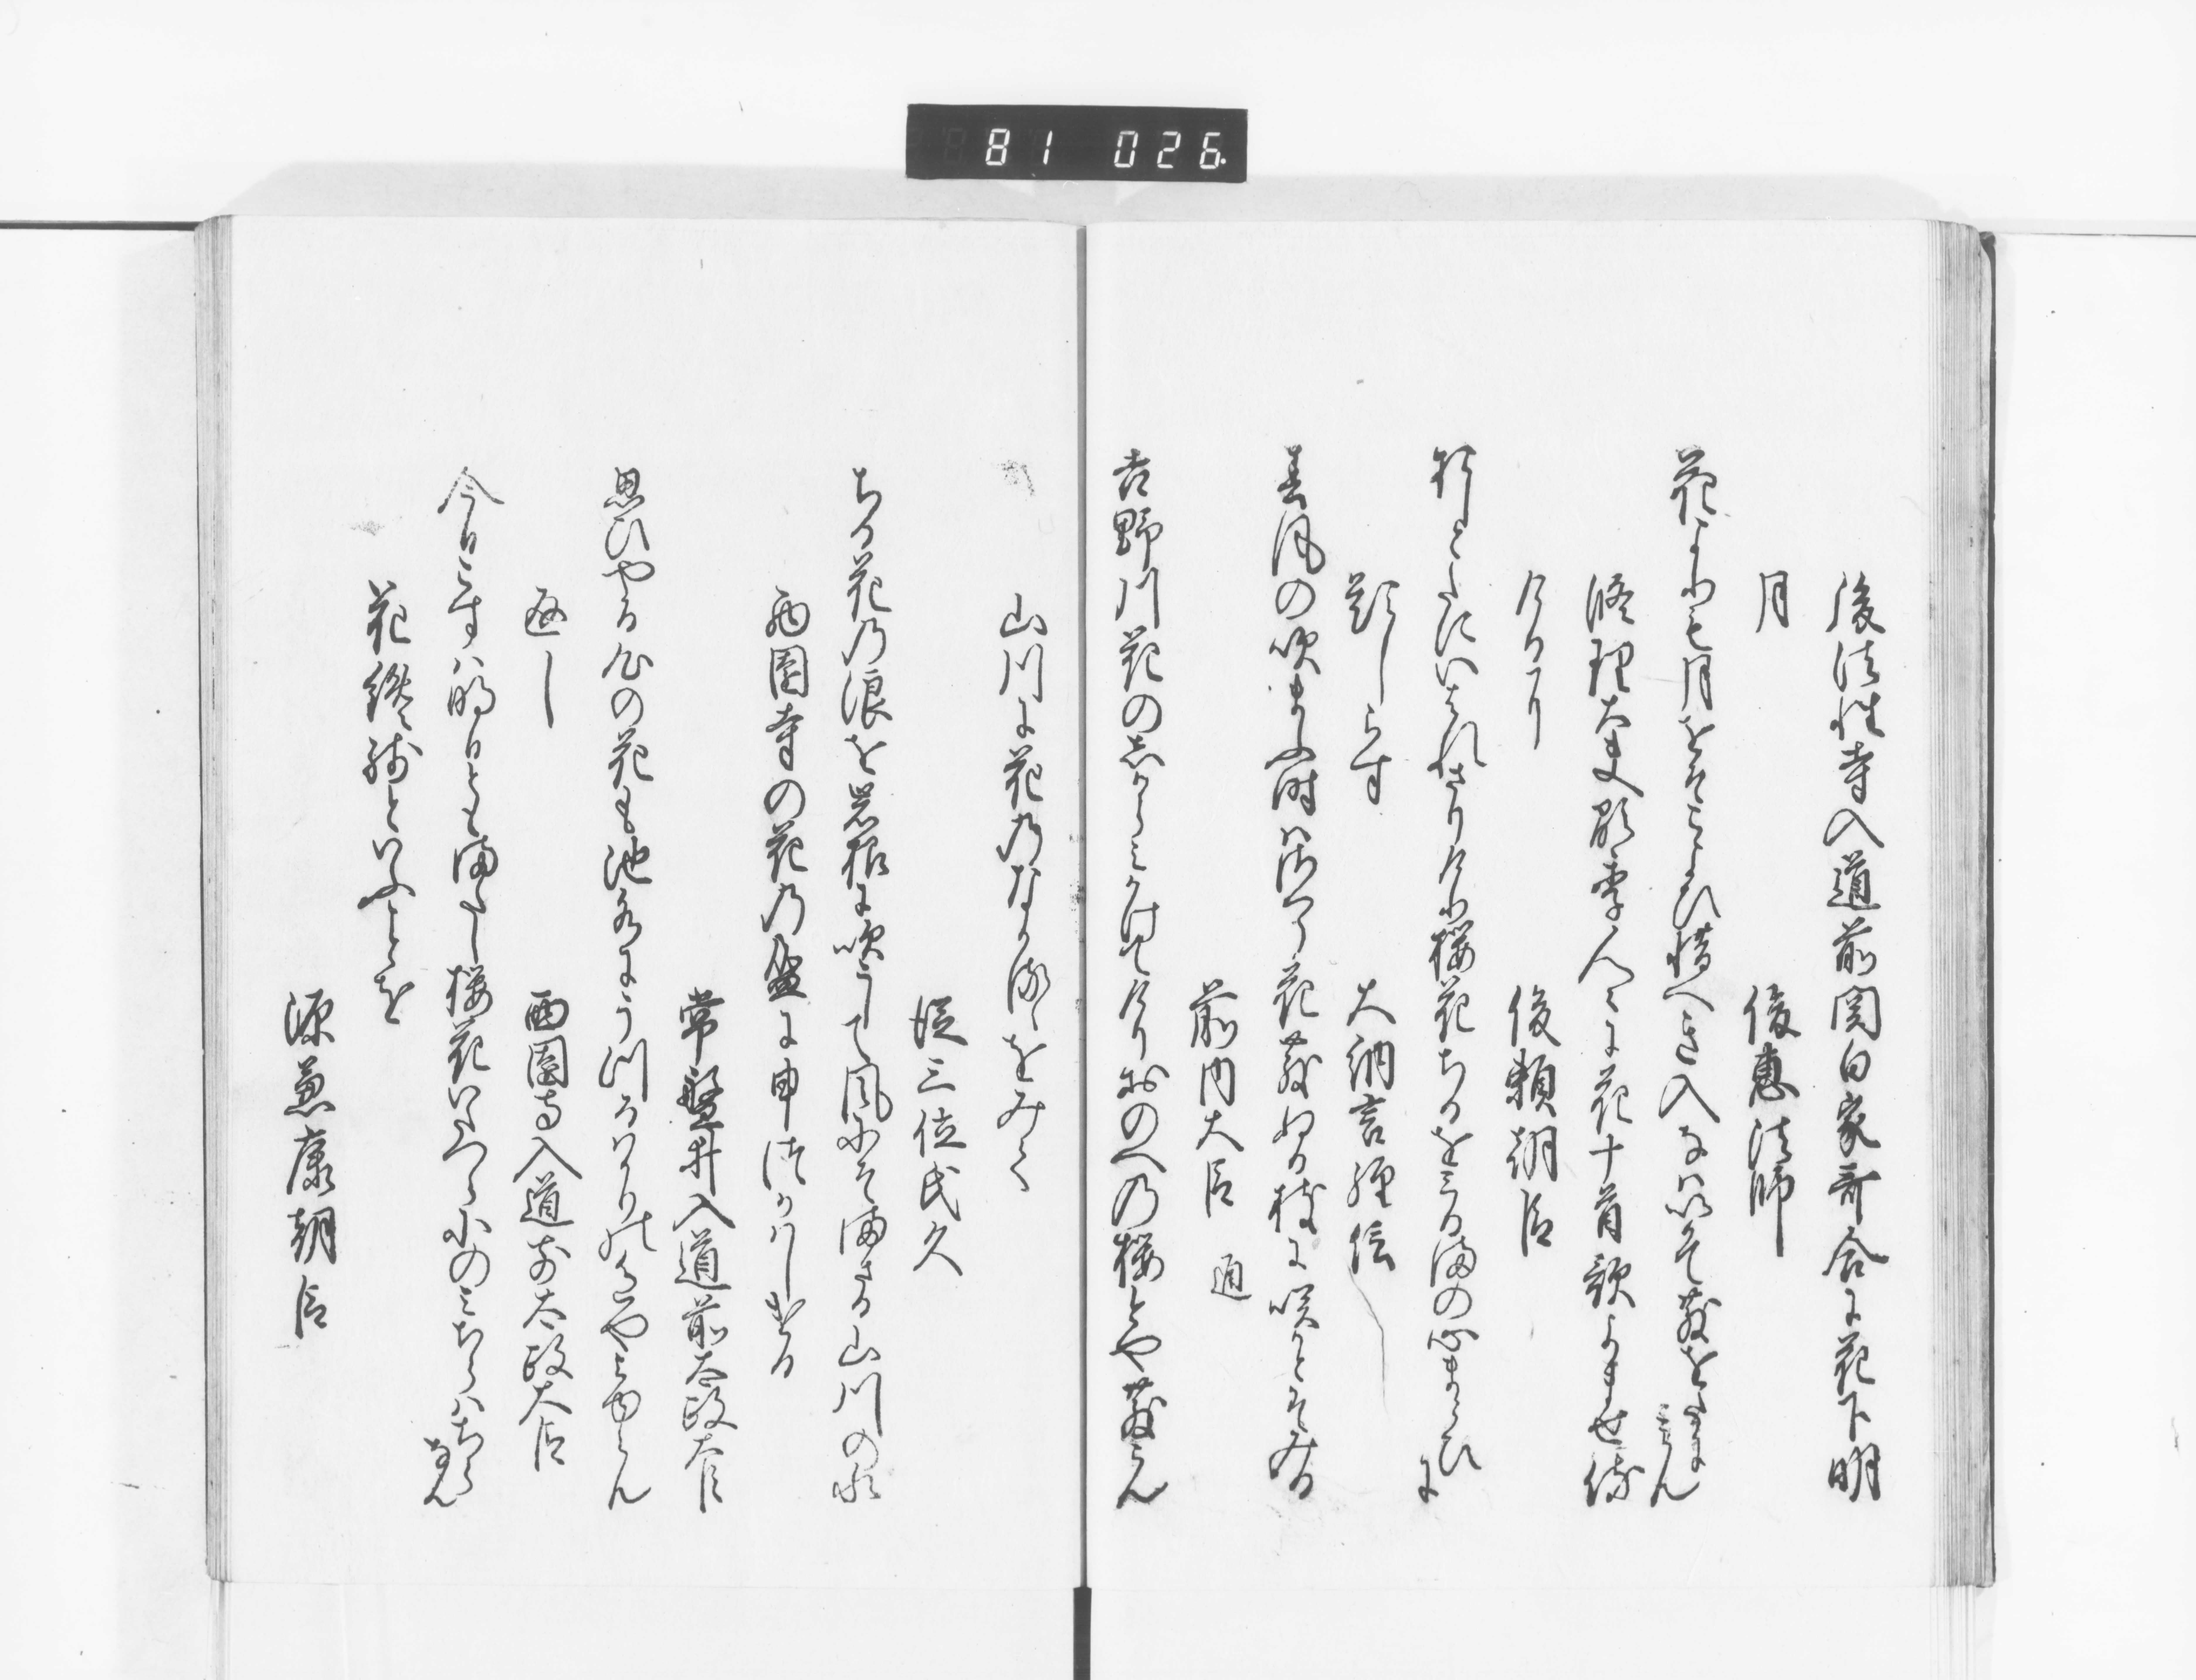 81 026
後法性寺入道前関白家哥合に花下明
月
俊恵法師
花よりも月をそこよひ惜へき入なはいかて散をたに
みん
修理大夫顕季人々に花十首歌よませ侍
けり
俊頼朝臣
桜花ちるをみるまの心まよひ
に
題しらす
大納言経信
春風の吹まふ時は
花散ぬる枝に咲かとそみる
前内大臣 通
吉野川花のしからみかけてけりおのへの桜今や散らん
山川に花のなかるゝをみて
従三位氏久
ちる花の浪を岩根に吹こして風にそまさる山川の水
西園寺の花の盛に申つかはしける
常盤井入道前太政大臣
思ひやる心の花も池水にうつるはかりの色やみゆらん
返し
西園寺入道前太政大臣
今日こすは明日ともまたし桜花いたつらにのみちらはちら
なん
花鎮祭といふことを
源兼康朝臣